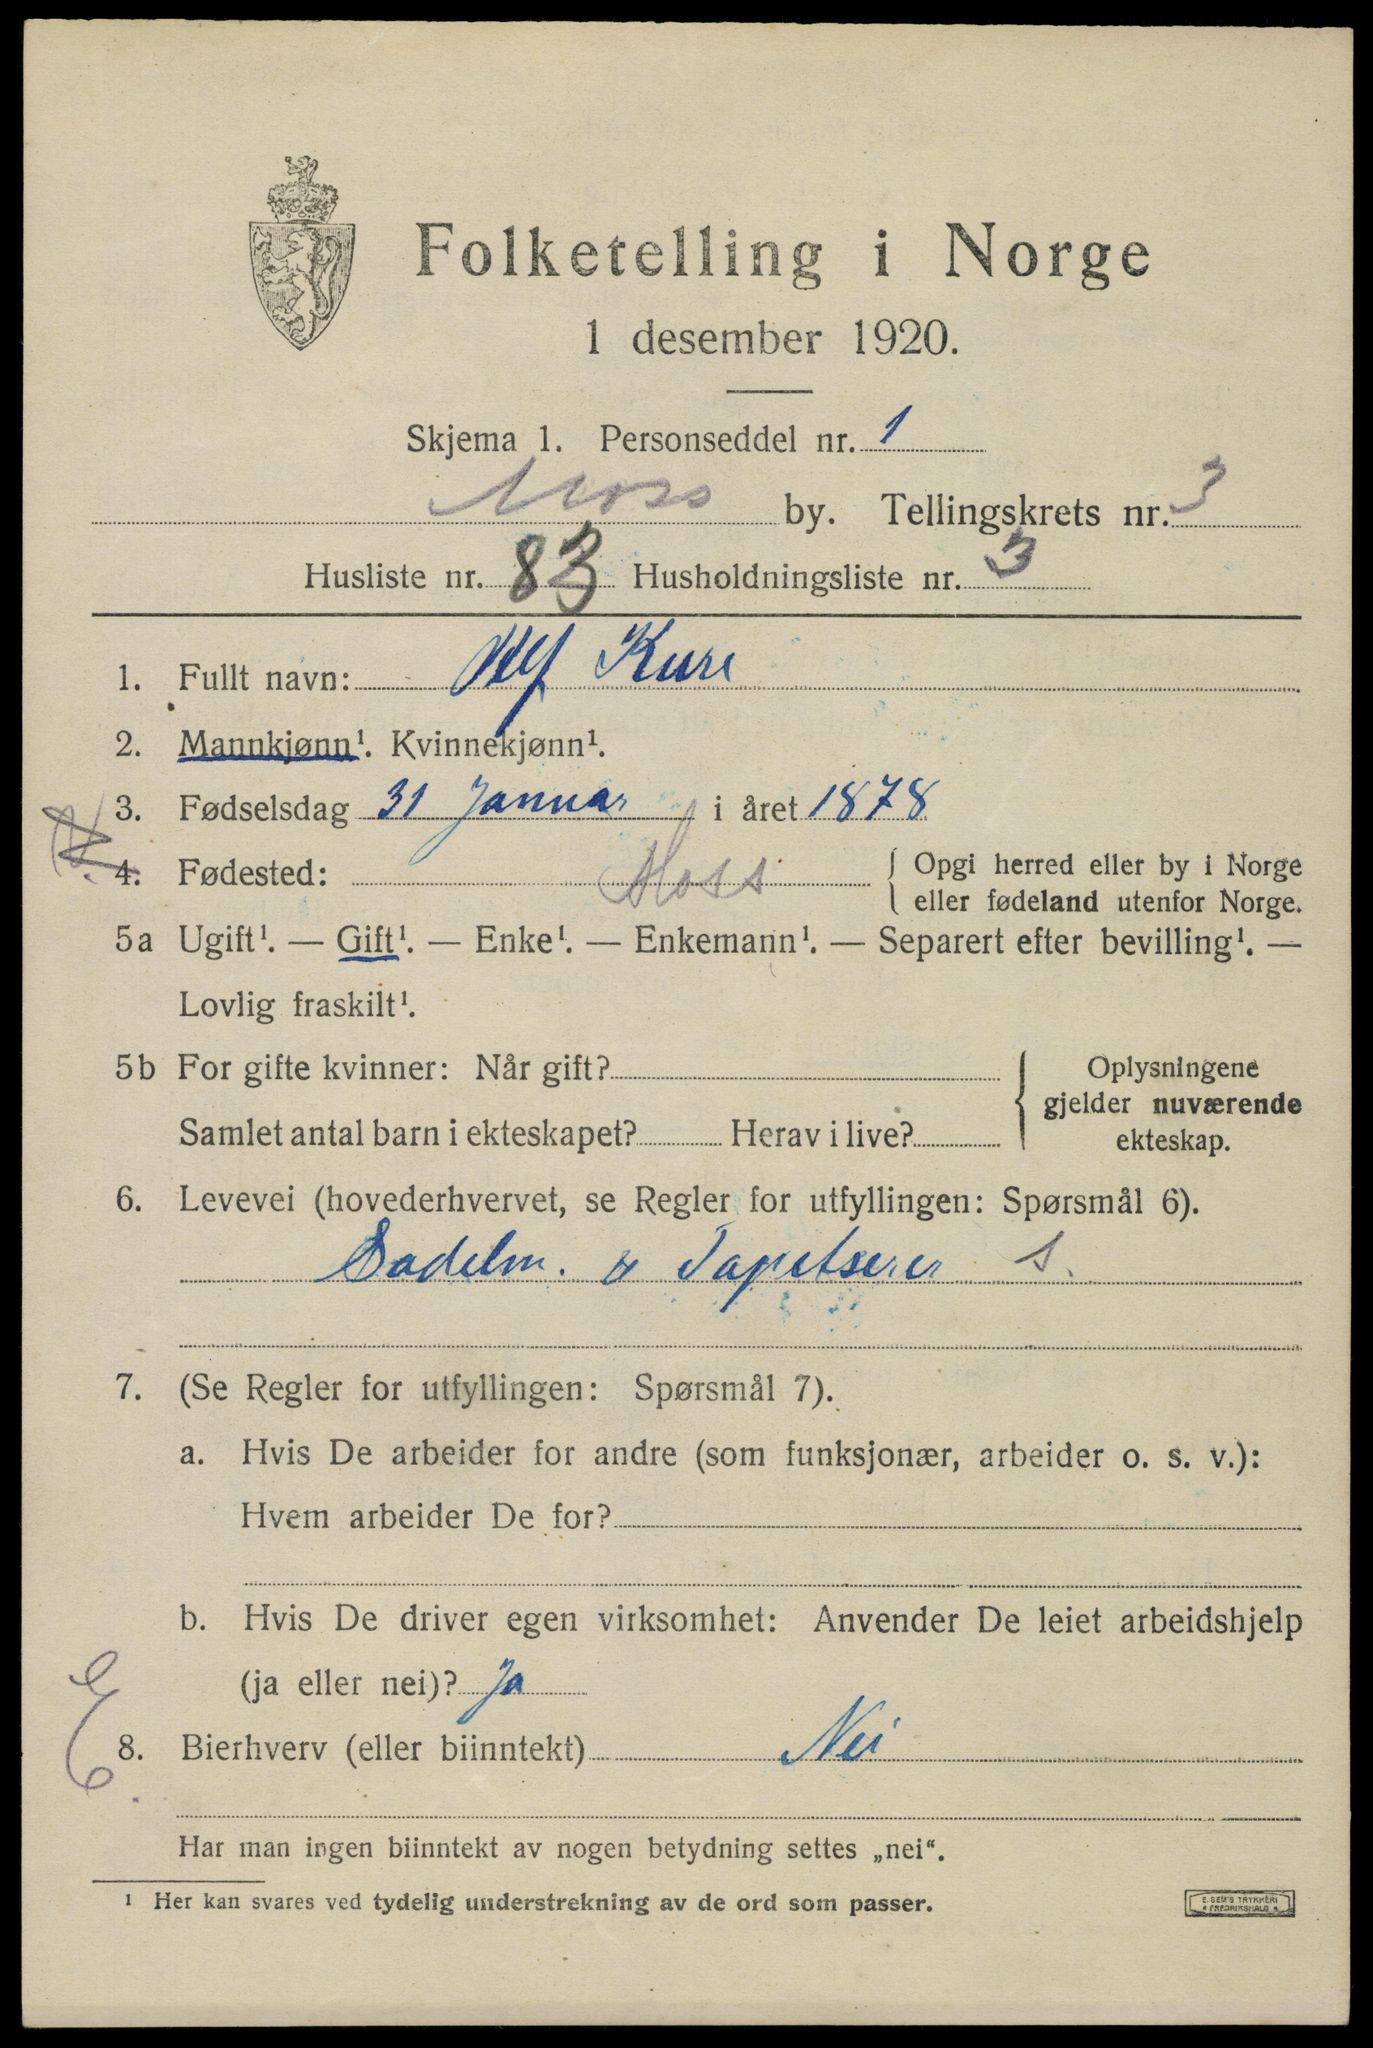 Folketelling i Norge
1 desember 1920.
Skjema 1. Personseddel nr. 1
Moss by. Tellingskrets nr. 3
Husliste nr. 83 Husholdningsliste nr. 3
1. Fullt navn: Kure
2. Mannkjønn¹. Kvinnekjønn¹.
3. Fødselsdag 31 Januar i året 1878
4. Fødested: Moss { Opgi herred eller by i Norge
eller fødeland utenfor Norge.
5a Ugift¹. — Gift¹. — Enke¹. — Enkemann¹. — Separert efter bevilling¹. —
Lovlig fraskilt¹.
5b For gifte kvinner: Når gift? { Oplysningene
gjelder nuværende
Samlet antal barn i ekteskapet? Herav i live?
ekteskap.
6. Levevei (hovederhvervet, se Regler for utfyllingen: Spørsmål 6).
Sadelm. & Tapetserer S.
7. (Se Regler for utfyllingen: Spørsmål 7).
a. Hvis De arbeider for andre (som funksjonær, arbeider o. s. v.):
Hvem arbeider De for?
b. Hvis De driver egen virksomhet: Anvender De leiet arbeidshjelp
(ja eller nei)? Ja
8. Bierhverv (eller biinntekt) Nei
Har man ingen biinntekt av nogen betydning settes „nei“.
¹ Her kan svares ved tydelig understrekning av de ord som passer.
E. SEM'S TRYKKERI
FREDRIKSHALD